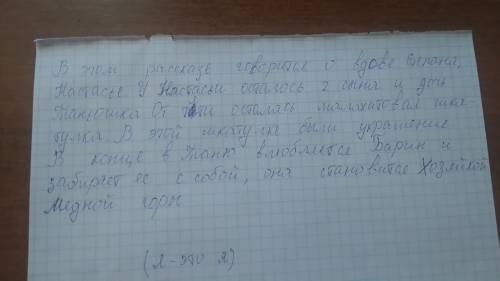 В этом рассказе говорится о вдове Степана,
Настасье У Настасьи осталось 2 сына и дочь
Танюшка От осталась малахитовая шка
тулка В этой шкатулке были украшение
В конце в Таню влюбляется Барин и
забирает ее с собой, она становится Хозяйкой
Медной горы
(Л-это Я)